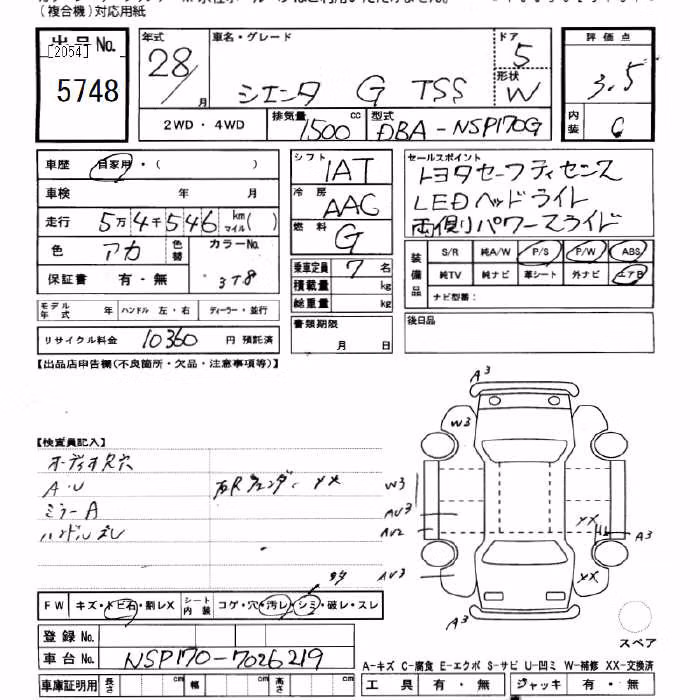 (複合機)対応用紙
出品No.
[2054]
5748
年式 28/月
車名・グレード シエンタ G TSS
ドア 5
形状 W
評価点 3.5
内装 C
2WD・4WD
排気量 1500 cc
型式 DBA-NSP170G
車歴 自家用・( )
車検 年 月
走行 5万4千546 km マイル( )
色 アカ 色替 カラーNo.
保証書 有・無 3T8
シフト IAT
冷房 AAC
燃料 G
乗車定員 7名
積載量 kg
総重量 kg
書類期限
月 日
セールスポイント
トヨタセーフティセンス
LEDヘッドライト
両側パワースライド
装備品 S/R 純A/W P/S P/W ABS
純TV 純ナビ 革シート 外ナビ エアB
ナビ型番:
後日品
モデル年式 年 ハンドル 左・右 ディーラー・並行
リサイクル料金 10360 円 預託済
【出品店申告欄(不良箇所・欠品・注意事項等)】
【検査員記入】
オーディオ穴
A・U
右Rフェンダー XX
ミラーA
ハンドルズレ
A3
W3
W3
AU3
AU2
AU3
XX
A3
XX
A3
スペア
FW キズ・トビ石・割レX シート内装 コゲ・穴・汚レ・シミ・破レ・スレ
登録No.
車台No. NSP170-7026219
A-キズ C-腐食 E-エクボ S-サビ U-凹ミ W-補修 XX-交換済
車庫証明用 長さ cm 幅 cm 高さ cm
工具 有・無 ジャッキ 有・無